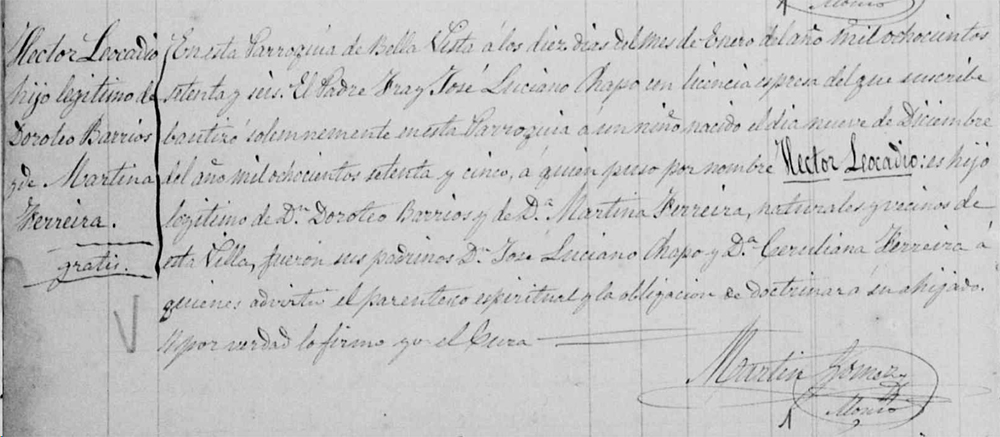 Monzo
Hector Leocadio
hijo legitimo de
Doroteo Barrios
y de Martina
Ferreira.
gratis.
En esta Parroquia de Bella Vista á los diez dias del mes de Enero del año mil ochocientos
setenta y seis. El Padre Fray José Luciano Chapo con licencia espresa del que suscribe
bautizó solemnemente en esta Parroquia á un niño nacido el dia nueve de Diciembre
del año mil ochocientos setenta y cinco, á quien puso por nombre Hector Leocadio: es hijo
legitimo de Dn. Doroteo Barrios y de Da. Martina Ferreira, naturales y vecinos de
esta Villa, fueron sus padrinos Dn. José Luciano Chapo y Da. Ferreira á
quienes advirtió el parentesco espiritual y la obligacion de doctrinar á su ahijado.
Y por verdad lo firmo yo el Cura
Martin Gomez